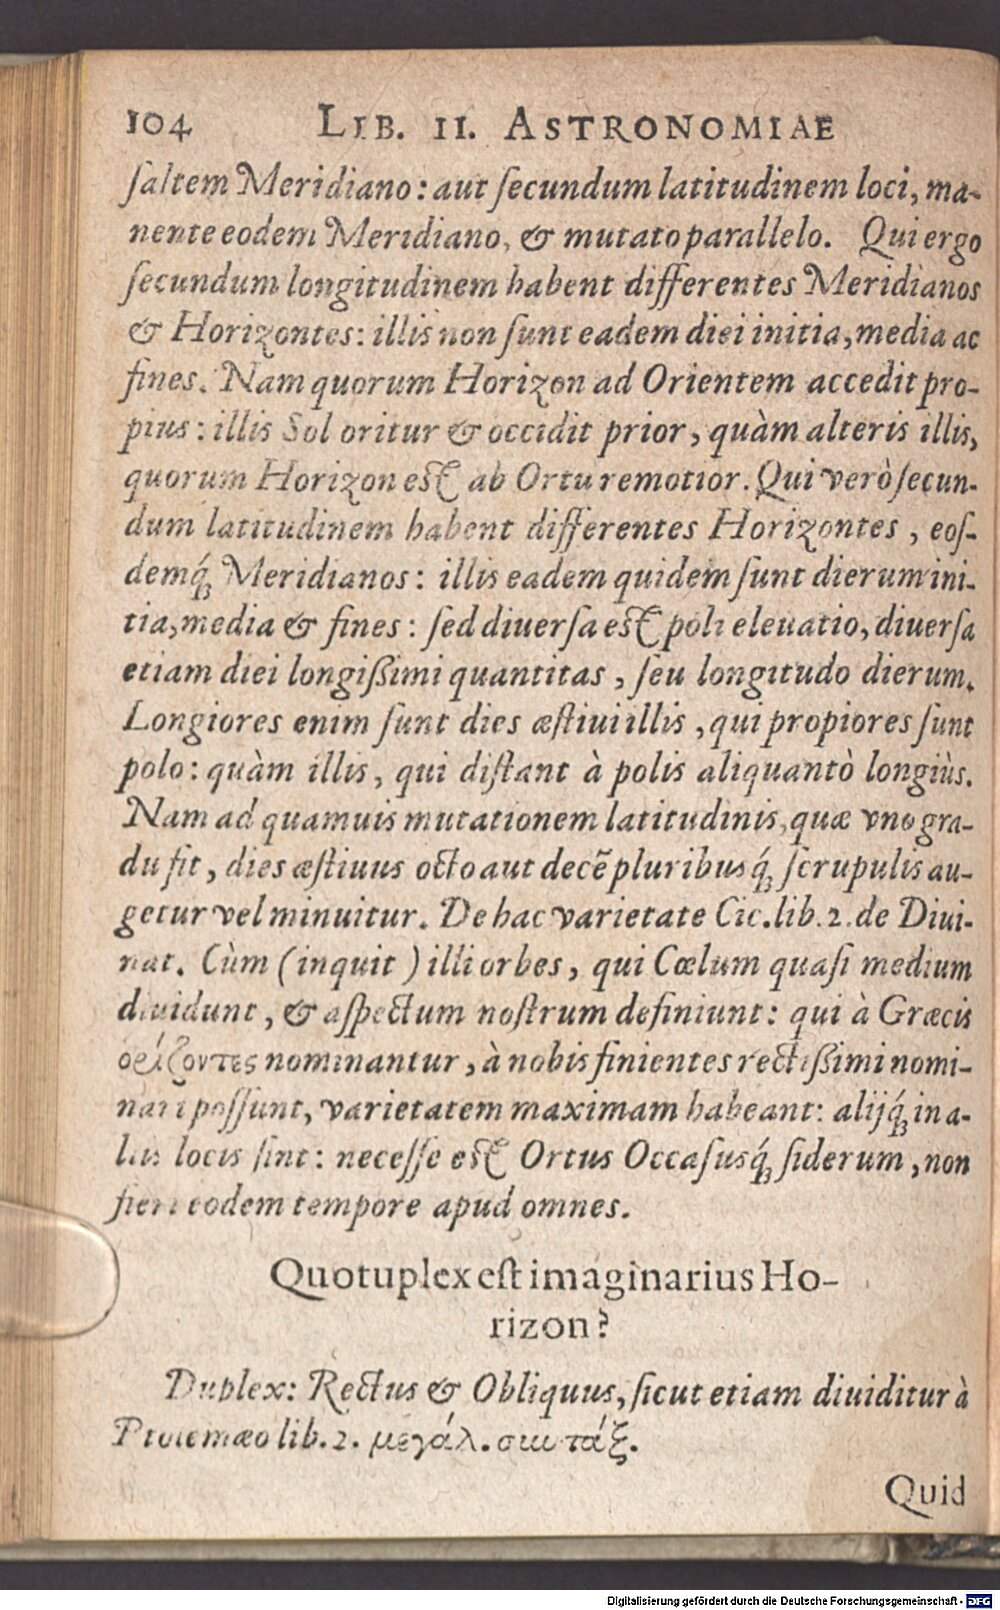 104 LIB. II. ASTRONOMIAE
ſaltem Meridiano: aut ſecundum latitudinem loci, ma-
nente eodem Meridiano, & mutato parallelo. Qui ergo
ſecundum longitudinem habent differentes Meridianos
& Horizontes: illis non ſunt eadem diei initia, media ac
fines. Nam quorum Horizon ad Orientem accedit pro-
pius: illis Sol oritur & occidit prior, quàm alteris illis,
quorum Horizon eſt ab Ortu remotior. Qui verò ſecun-
dum latitudinem habent differentes Horizontes, eoſ-
demq́; Meridianos: illis eadem quidem ſunt dierum ini-
tia, media & fines: ſed diuerſa eſt poli eleuatio, diuerſa
etiam diei longiſsimi quantitas, ſeu longitudo dierum.
Longiores enim ſunt dies æſtiui illis, qui propiores ſunt
polo: quàm illis, qui diſtant à polis aliquantò longiùs.
Nam ad quamuis mutationem latitudinis, quæ vno gra-
du fit, dies æſtiuus octo aut decẽ pluribusq́; ſcrupulis au-
getur vel minuitur. De hac varietate Cic. lib. 2. de Diui-
nat. Cùm (inquit) illi orbes, qui Cœlum quaſi medium
diuidunt, & aſpectum noſtrum definiunt: qui à Græcis
ὁρίζοντες nominantur, à nobis finientes rectiſsimi nomi-
nari poſſunt, varietatem maximam habeant: alijq́; in a-
liis locis ſint: neceſſe eſt Ortus Occaſusq́; ſiderum, non
fieri eodem tempore apud omnes.
Quotuplex eſt imaginarius Ho-
rizon?
Duplex: Rectus & Obliquus, ſicut etiam diuiditur à
Ptolemæo lib. 2. μεγάλ. συντάξ.
Quid
Digitalisierung gefördert durch die Deutsche Forschungsgemeinschaft - DFG